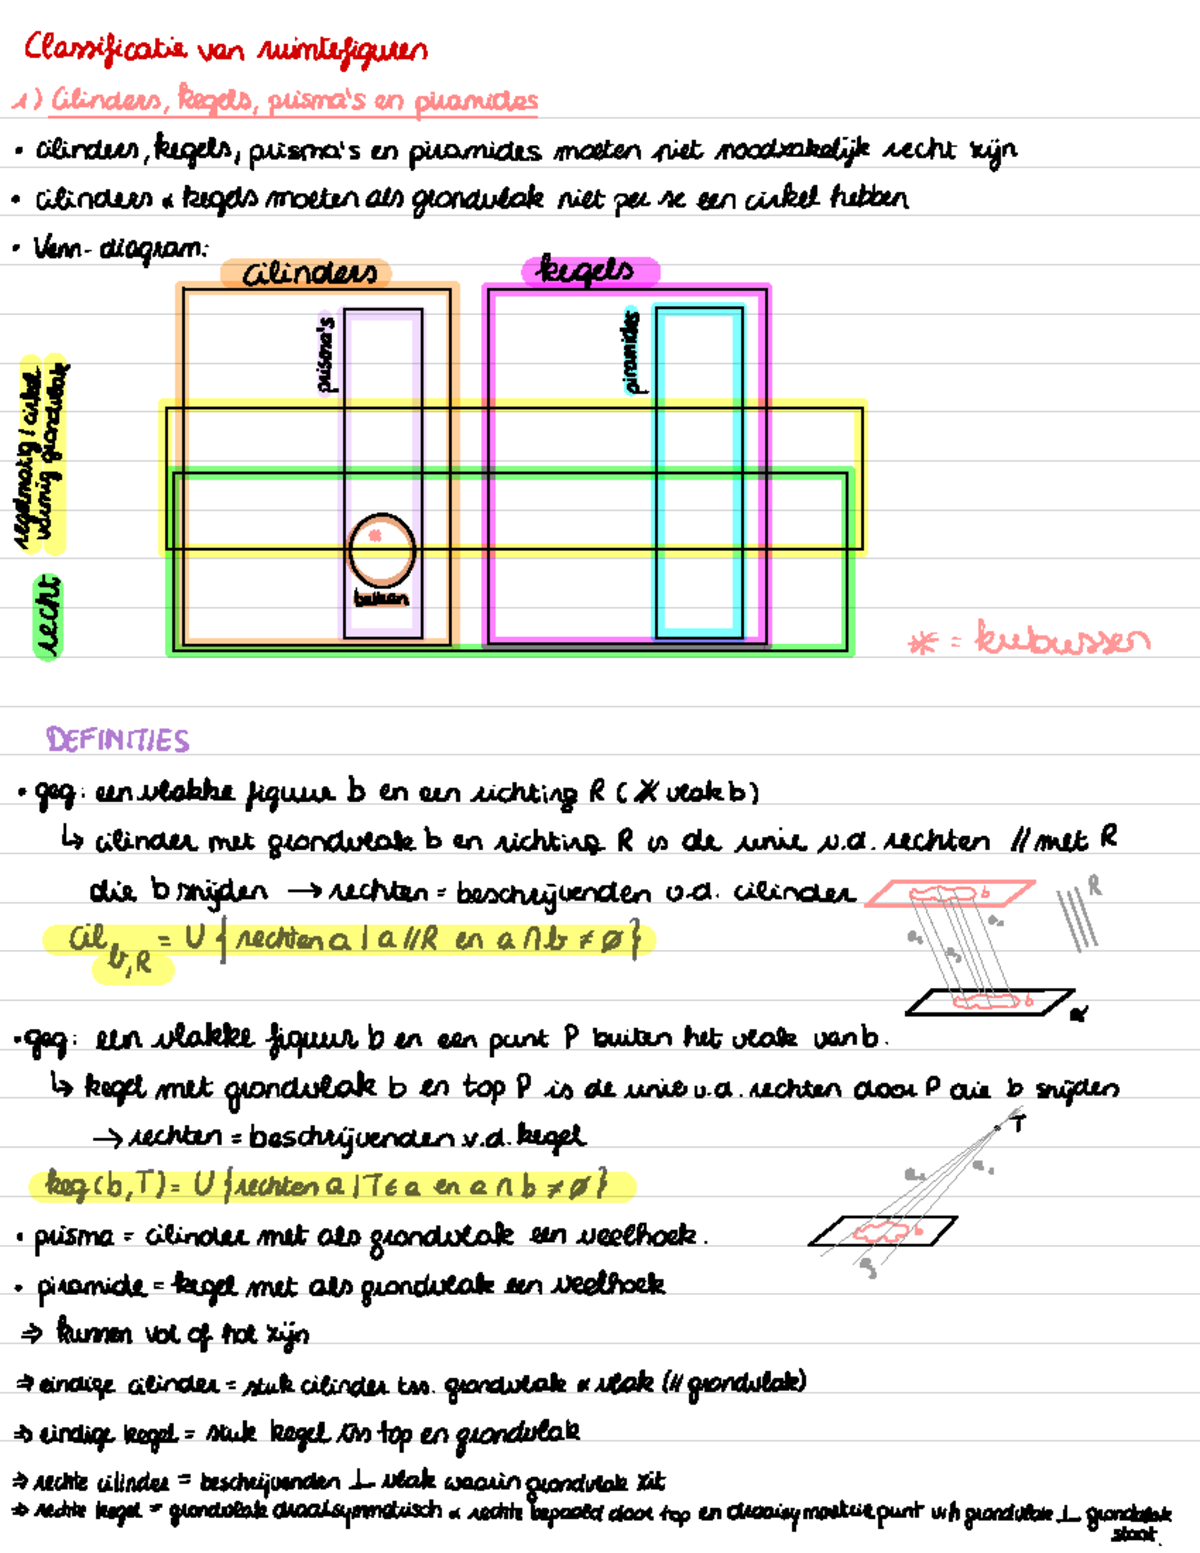 Classificatie van ruimtefiguren
1) Cilinders, kegels, prisma's en piramides
• cilinders, kegels, prisma's en piramides moeten niet noodzakelijk recht zijn
• cilinders & kegels moeten als grondvlak niet per se een cirkel hebben
• Venn-diagram:
cilinders
kegels
prisma's
piramides
regelmatig / cirkel
vormig grondvlak
*
balken
recht
* = kubussen
DEFINITIES
• geg: een vlakke figuur b en een richting R (∦ vlak b)
↳ cilinder met grondvlak b en richting R is de unie v.d. rechten // met R
die b snijden → rechten = beschrijvenden v.d. cilinder
b
R
a₁
a₂
a₃
cil b,R = U { rechten a | a // R en a ∩ b ≠ ø }
b
α
• geg: een vlakke figuur b en een punt P buiten het vlak van b.
↳ kegel met grondvlak b en top P is de unie v.d. rechten door P die b snijden
→ rechten = beschrijvenden v.d. kegel
T
keg(b,T) = U { rechten a | T ∈ a en a ∩ b ≠ ø }
• prisma = cilinder met als grondvlak een veelhoek.
b
a₃
• piramide = kegel met als grondvlak een veelhoek
⇒ kunnen vol of hol zijn
⇒ eindige cilinder = stuk cilinder tss. grondvlak & vlak (// grondvlak)
⇒ eindige kegel = stuk kegel tss top en grondvlak
⇒ rechte cilinder = beschrijvenden ⊥ vlak waarin grondvlak zit
⇒ rechte kegel = grondvlak draaisymmetrisch & rechte bepaald door top en draaisymmetriepunt v/h grondvlak ⊥ grondvlak
staat.